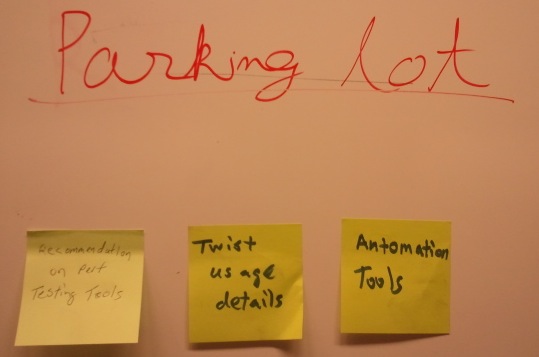 Parking lot
Recomendation
on perf
Testing Tools
Twist
usage
details
Automation
Tools